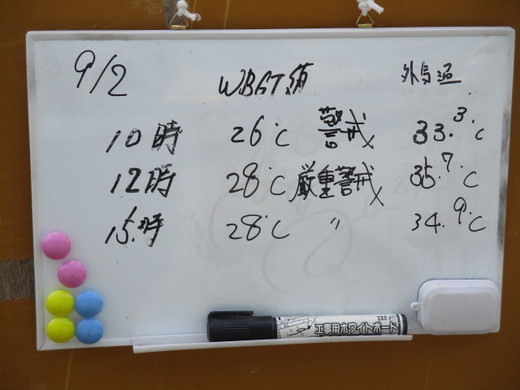 9/2 WBGT値 外気温
10時 26℃ 警戒 33.3℃
12時 28℃ 厳重警戒 35.7℃
15時 28℃ 〃 34.9℃
工事用ホワイトボード